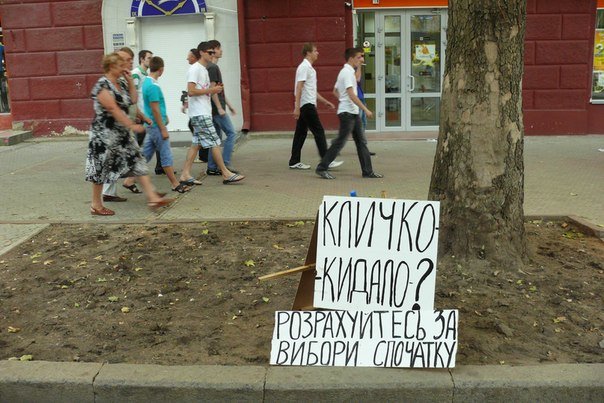 КЛИЧКО-
-КИДАЛО?
РОЗРАХУЙТЕСЬ ЗА
ВИБОРИ СПОЧАТКУ